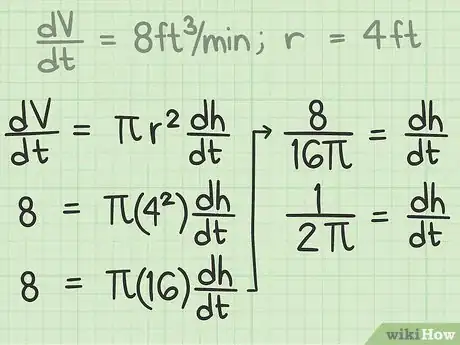 dV/dt = 8ft³/min; r = 4ft
dV/dt = πr² dh/dt
8 = π(4²) dh/dt
8 = π(16) dh/dt
8/16π = dh/dt
1/2π = dh/dt
wikiHow